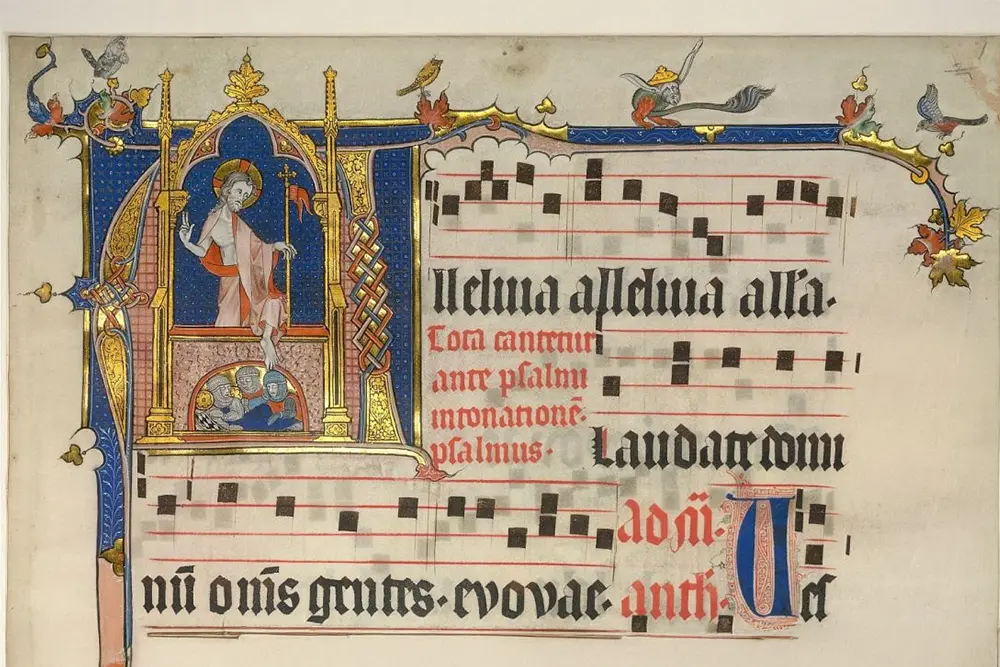 Alleluia alleluia all'a.
Tota cantetur
ante psalmi
intonationē
psalmus. Laudate domi
ad
nū om̄s gentes. evovae. anth. Ves